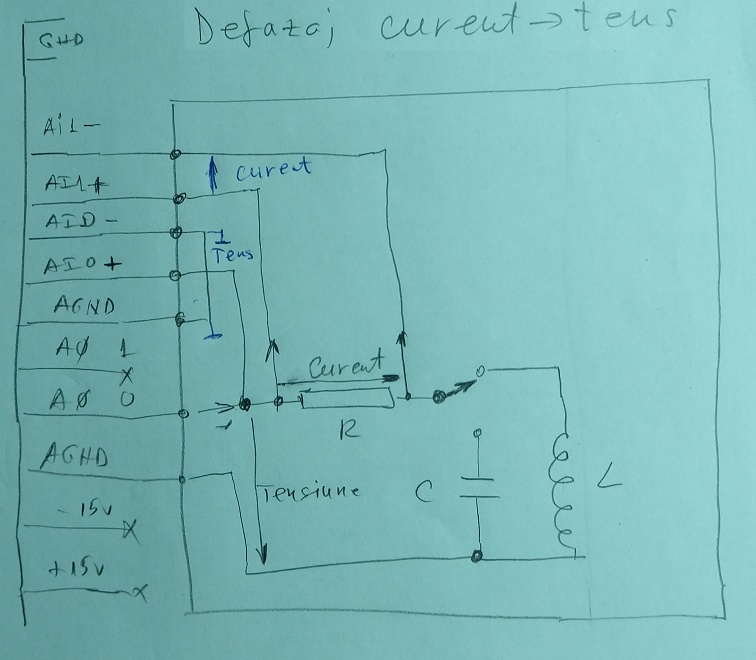 Defazaj curent→tens
GND
AI1-
AI1+
curent
AI0-
Tens
AI0+
AGND
AØ 1
X
Curent
AØ 0
R
AGND
Tensiune
C
L
-15v
X
+15v
X